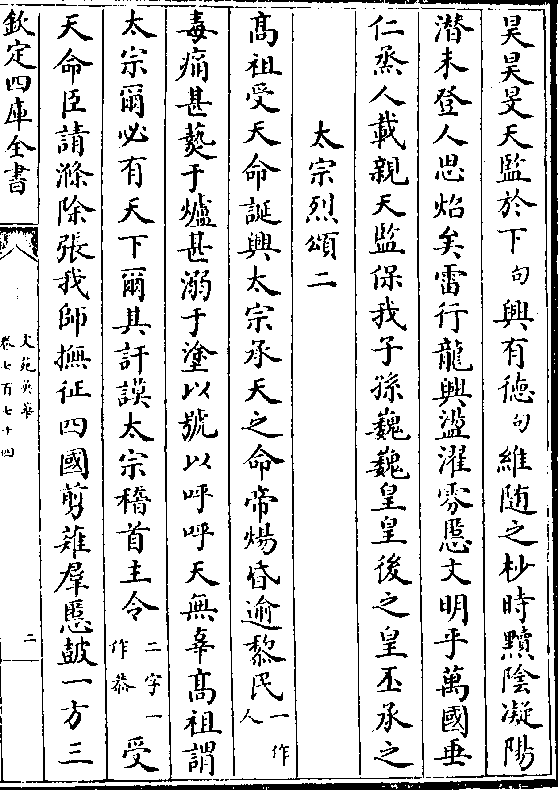 昊昊旻天監於下句興有德句維随之杪時黷陰凝陽
潜未登人思焰矣雷行龍興盪濯雰慝文明乎萬國垂
仁烝人載親天監保我子孫巍巍皇皇後之皇丕承之
太宗烈頌二
高祖受天命誕興太宗承天之命帝煬昏逾黎民一作人
毒痛甚爇于爐甚溺于塗以號以呼呼天無辜高祖謂
太宗爾必有天下爾其訏謨太宗稽首主令二字一作恭受
天命臣請滌除張我師撫征四國剪薙羣慝皷一方三
欽定四庫全書
文苑英華
卷七百七十四
二